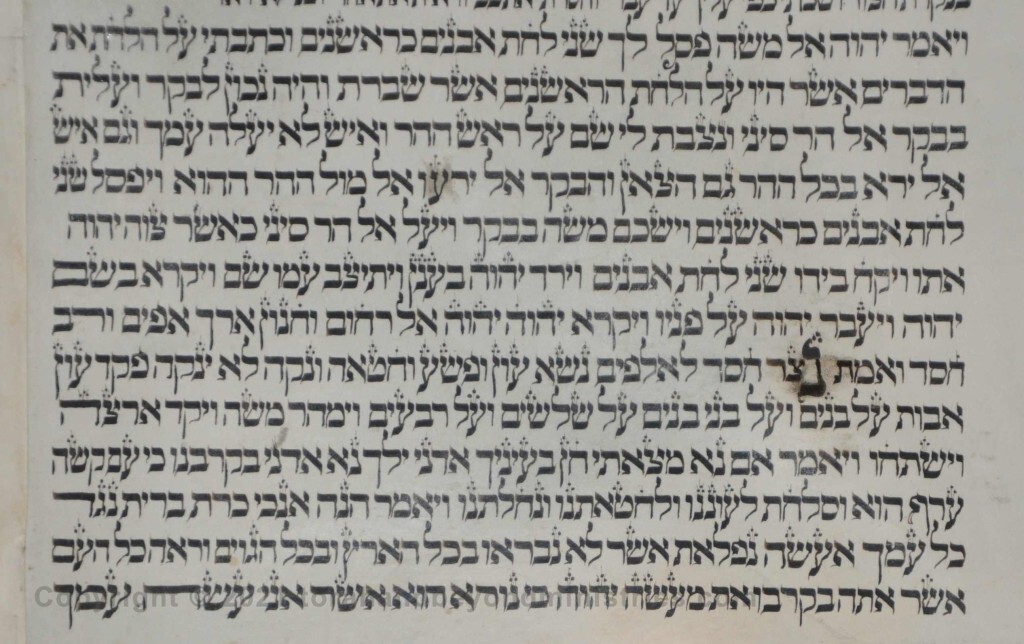 ויאמר יהוה אל משה פסל לך שני לחת אבנים כראשנים וכתבתי על הלחת את
הדברים אשר היו על הלחת הראשנים אשר שברת והיה נכון לבקר ועלית
בבקר אל הר סיני ונצבת לי שם על ראש ההר ואיש לא יעלה עמך וגם איש
אל ירא בכל ההר גם הצאן והבקר אל ירעו אל מול ההר ההוא ויפסל שני
לחת אבנים כראשנים וישכם משה בבקר ויעל אל הר סיני כאשר צוה יהוה
אתו ויקח בידו שני לחת אבנים וירד יהוה בענן ויתיצב עמו שם ויקרא בשם
יהוה ויעבר יהוה על פניו ויקרא יהוה יהוה אל רחום וחנון ארך אפים ורב
חסד ואמת נצר חסד לאלפים נשא עון ופשע וחטאה ונקה לא ינקה פקד עון
אבות על בנים ועל בני בנים על שלשים ועל רבעים וימהר משה ויקד ארצה
וישתחו ויאמר אם נא מצאתי חן בעיניך אדני ילך נא אדני בקרבנו כי עם קשה
ערף הוא וסלחת לעוננו ולחטאתנו ונחלתנו ויאמר הנה אנכי כרת ברית נגד
כל עמך אעשה נפלאת אשר לא נבראו בכל הארץ ובכל הגוים וראה כל העם
אשר אתה בקרבו את מעשה יהוה כי נורא הוא אשר אני עשה עמך
Copyright ©